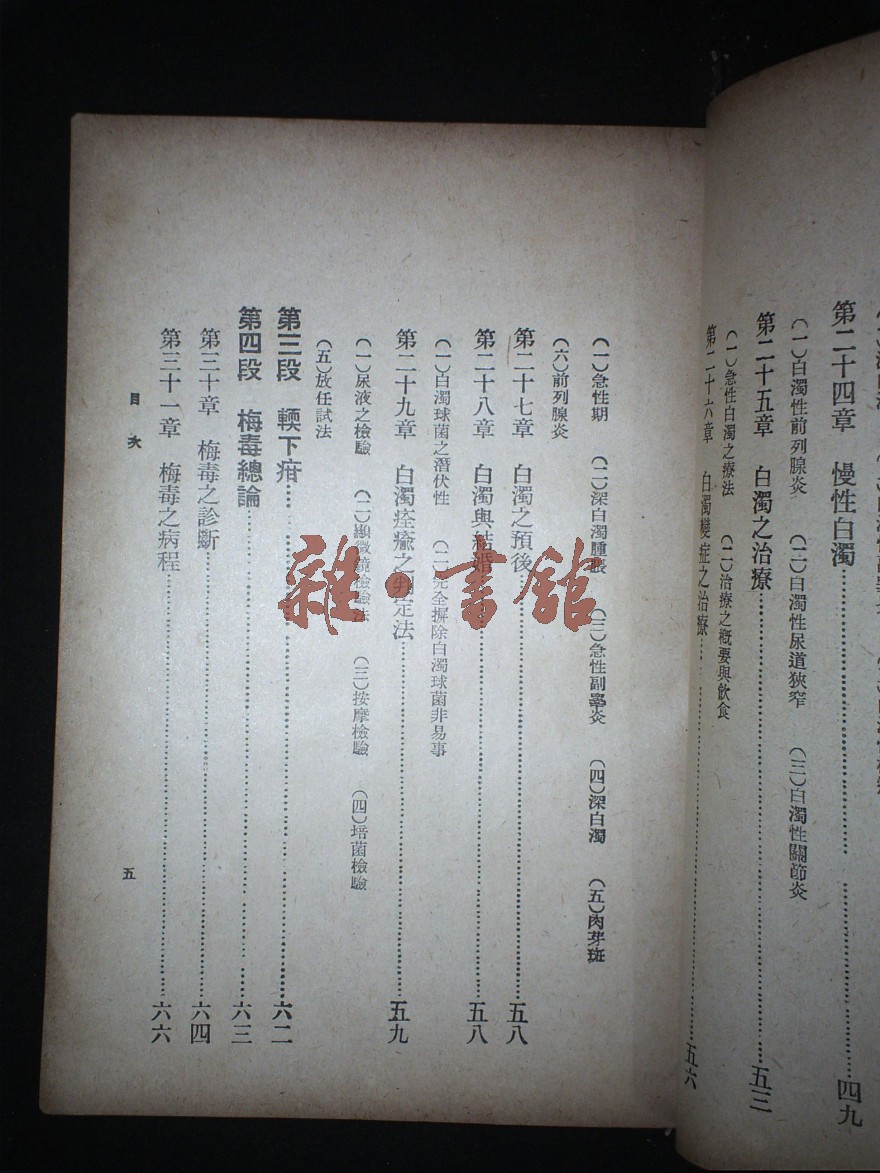 第二十四章　慢性白濁……四九
(一)白濁性前列腺炎　(二)白濁性尿道狹窄　(三)白濁性關節炎
第二十五章　白濁之治療……五三
(一)急性白濁之療法　(二)治療之概要與飲食
第二十六章　白濁變症之治療……五六
(一)急性期　(二)深白濁腫脹　(三)急性副睾炎　(四)深白濁　(五)肉芽斑
(六)前列腺炎
第二十七章　白濁之預後……五八
第二十八章　白濁與結婚……五八
(一)白濁球菌之潛伏性　(二)完全摒除白濁球菌非易事
第二十九章　白濁痊癒之判定法……五九
(一)尿液之檢驗　(二)顯微鏡檢驗法　(三)按摩檢驗　(四)培菌檢驗
(五)放任試法
第三段　輭下疳……六二
第四段　梅毒總論……六三
第三十章　梅毒之診斷……六四
第三十一章　梅毒之病程……六六
目次
五
雜·書館